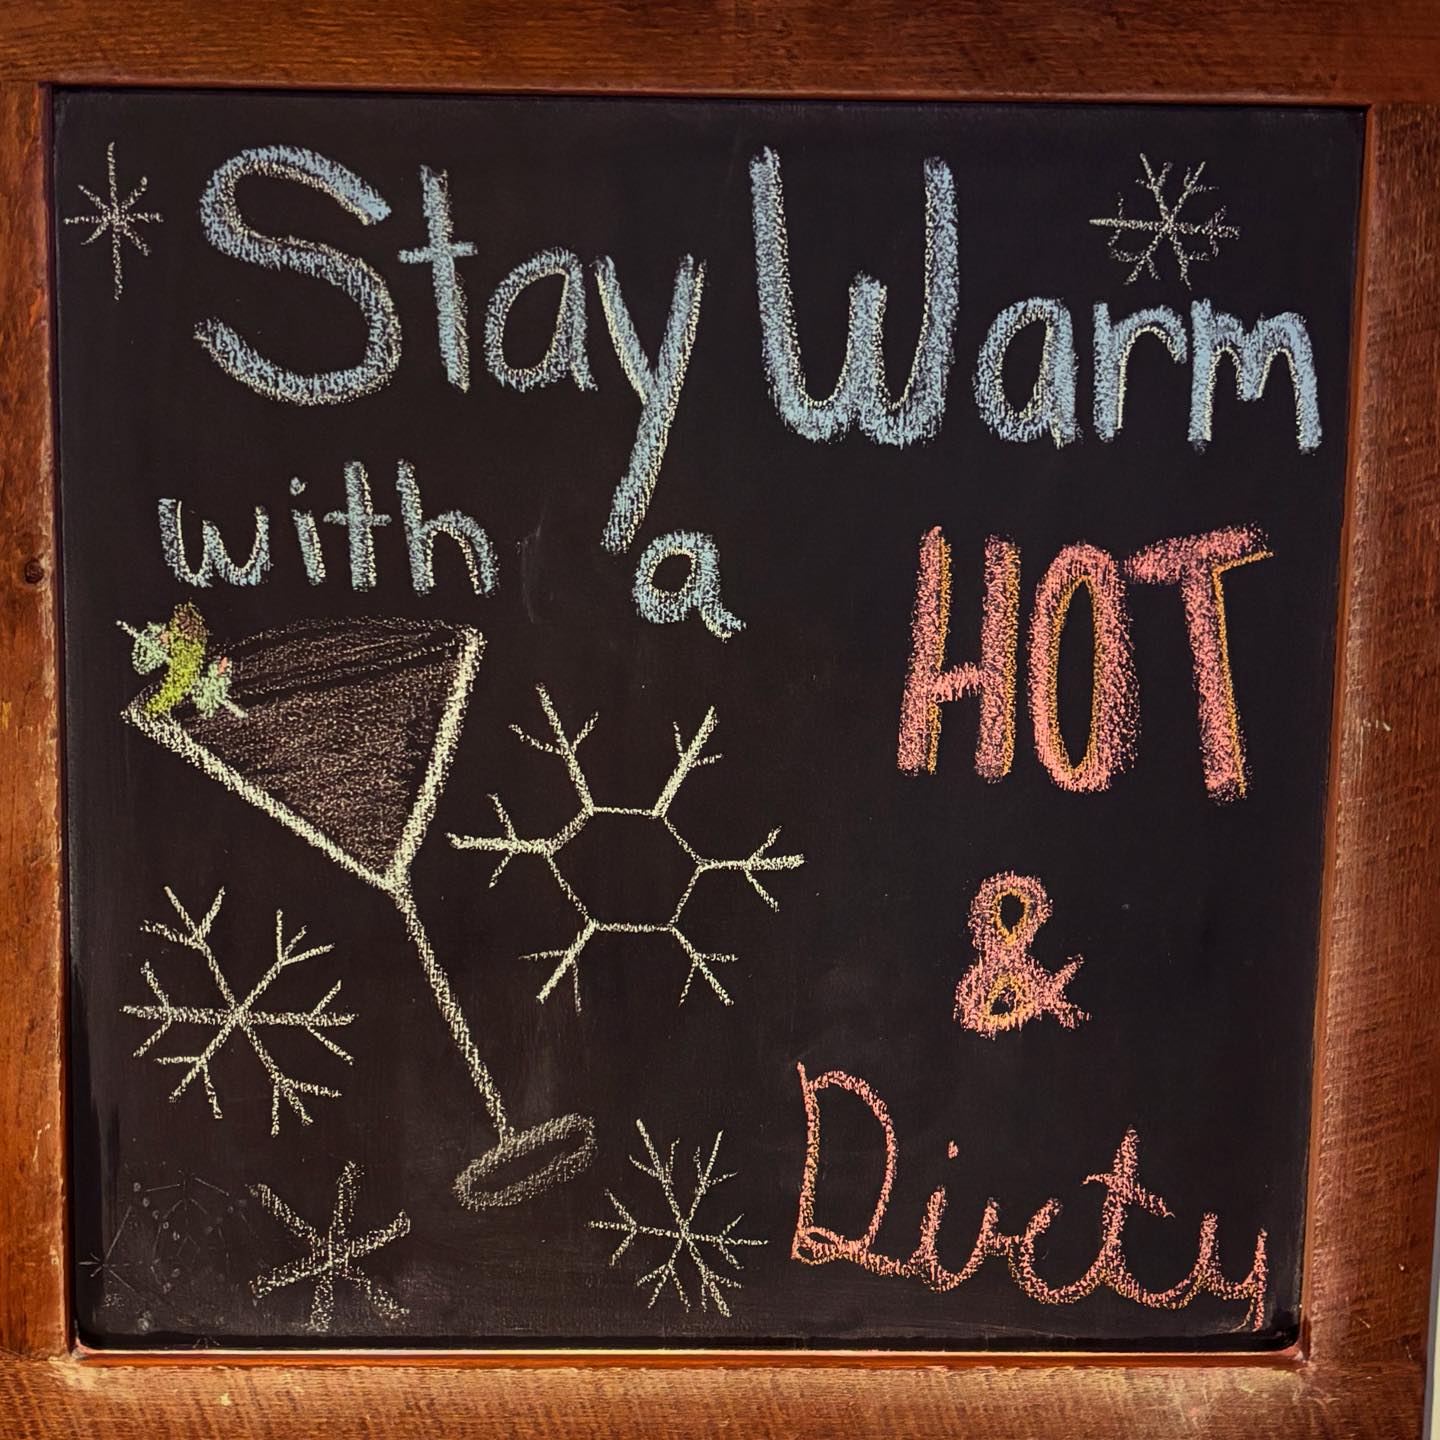 Stay Warm
with a HOT
&
Dirty